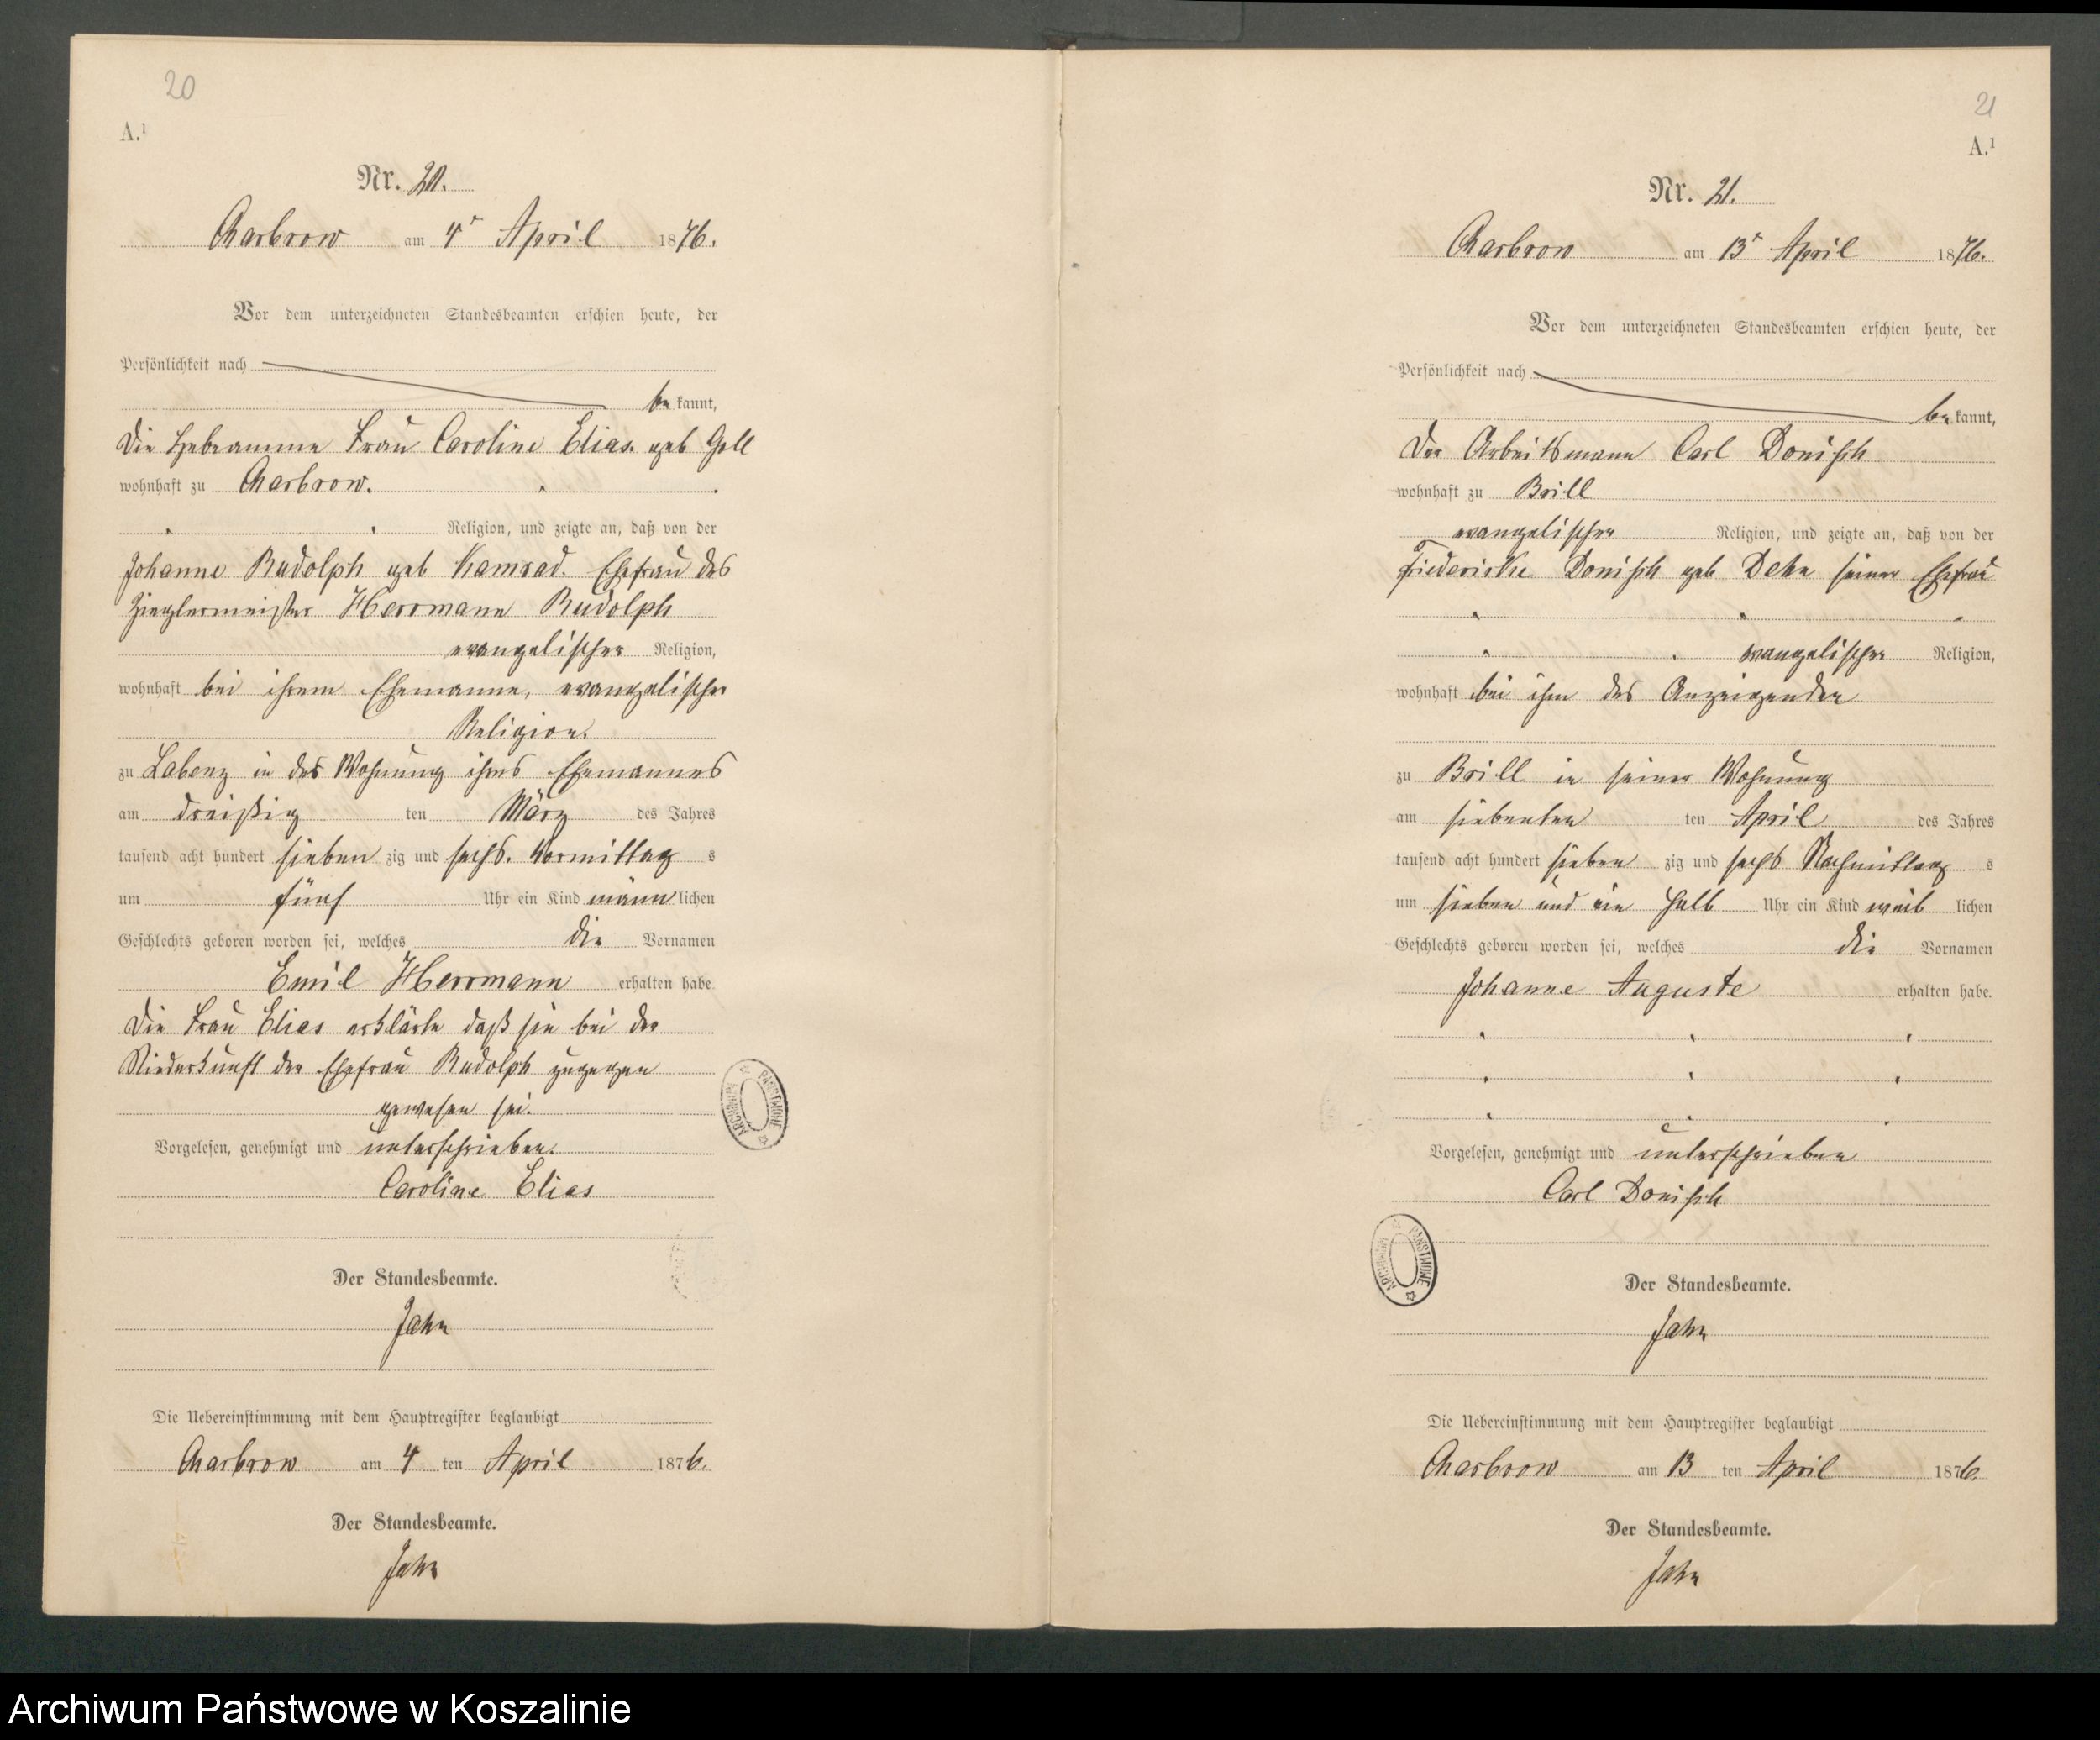 20
A.¹
Nr. 20.
Charbrow am 4ᵗ April 1876.
Vor dem unterzeichneten Standesbeamten erschien heute, der
Persönlichkeit nach
be kannt,
Die Hebeamme Frau Caroline Elias. geb Goll
wohnhaft zu Charbrow.
Religion, und zeigte an, daß von der
Johanne Rudolph geb Kamrad. Ehefrau des
Zieglermeister Herrmann Rudolph
evangelischer Religion,
wohnhaft bei ihrem Ehemanne, evangelischer
Religion.
zu Labenz in der Wohnung ihres Ehemannes
am dreißig ten März des Jahres
tausend acht hundert sieben zig und sechs. Vormittag s
um fünf Uhr ein Kind männ lichen
Geschlechts geboren worden sei, welches die Vornamen
Emil Herrmann erhalten habe
Die Frau Elias erklärte daß sie bei der
Niederkunft der Ehefrau Rudolph zugegen
gewesen sei.
Vorgelesen, genehmigt und unterschrieben.
Caroline Elias
ARCHIWUM PAŃSTWOWE
Der Standesbeamte.
Jahn
Die Uebereinstimmung mit dem Hauptregister beglaubigt
Charbrow am 4 ten April 1876.
Der Standesbeamte.
Jahn
21
A.¹
Nr. 21.
Charbrow am 13ᵗ April 1876.
Vor dem unterzeichneten Standesbeamten erschien heute, der
Persönlichkeit nach
be kannt,
Der Arbeitsmann Carl Donisch
wohnhaft zu Brill
evangelischer Religion, und zeigte an, daß von der
Friedericke Donisch geb Dehn seiner Ehefrau
evangelischer Religion,
wohnhaft bei ihm des Anzeigenden
zu Brill in seiner Wohnung
am siebenten ten April des Jahres
tausend acht hundert sieben zig und sechs Nachmittag s
um sieben und ein halb Uhr ein Kind weib lichen
Geschlechts geboren worden sei, welches die Vornamen
Johanne Auguste erhalten habe.
Vorgelesen, genehmigt und unterschrieben
Carl Donisch
ARCHIWUM PAŃSTWOWE
Der Standesbeamte.
Jahn
Die Uebereinstimmung mit dem Hauptregister beglaubigt
Charbrow am 13 ten April 1876.
Der Standesbeamte.
Jahn
Archiwum Państwowe w Koszalinie